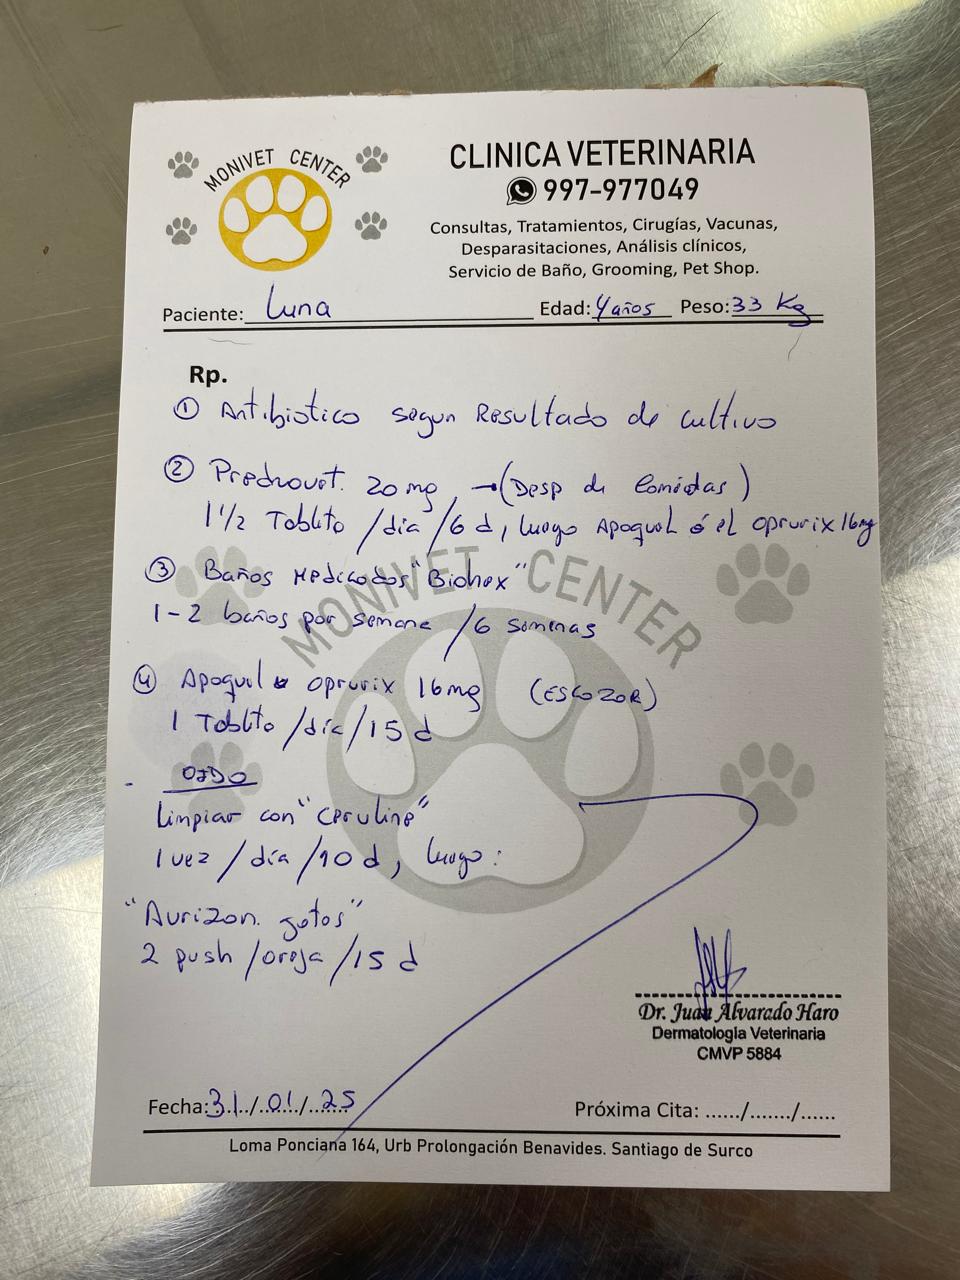 MONIVET CENTER
CLINICA VETERINARIA
997-977049
Consultas, Tratamientos, Cirugías, Vacunas,
Desparasitaciones, Análisis clínicos,
Servicio de Baño, Grooming, Pet Shop.
Paciente: Luna Edad: 4 años Peso: 33 Kg
Rp.
① Antibiotico segun Resultado de cultivo
② Prednovet. 20 mg, → (Desp de Comidas)
1 1/2 Tableta /día /6 d, luego Apoquel ó el oprurix 16mg
③ Baños Medicados "Biohex"
1-2 baños por semana /6 semanas
MONIVET CENTER
④ Apoquel oprurix 16mg (ESCOZOR)
1 Tableta /día /15 d
- OIDO
Limpiar con "Ceruline"
1 vez /día /10 d, luego:
"Aurizon. gotas"
2 push /oreja /15 d
Dr. Juan Alvarado Haro
Dermatología Veterinaria
CMVP 5884
Fecha: 31/01/25 Próxima Cita: ....../......./......
Loma Ponciana 164, Urb Prolongación Benavides. Santiago de Surco